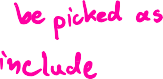 be picked as
include